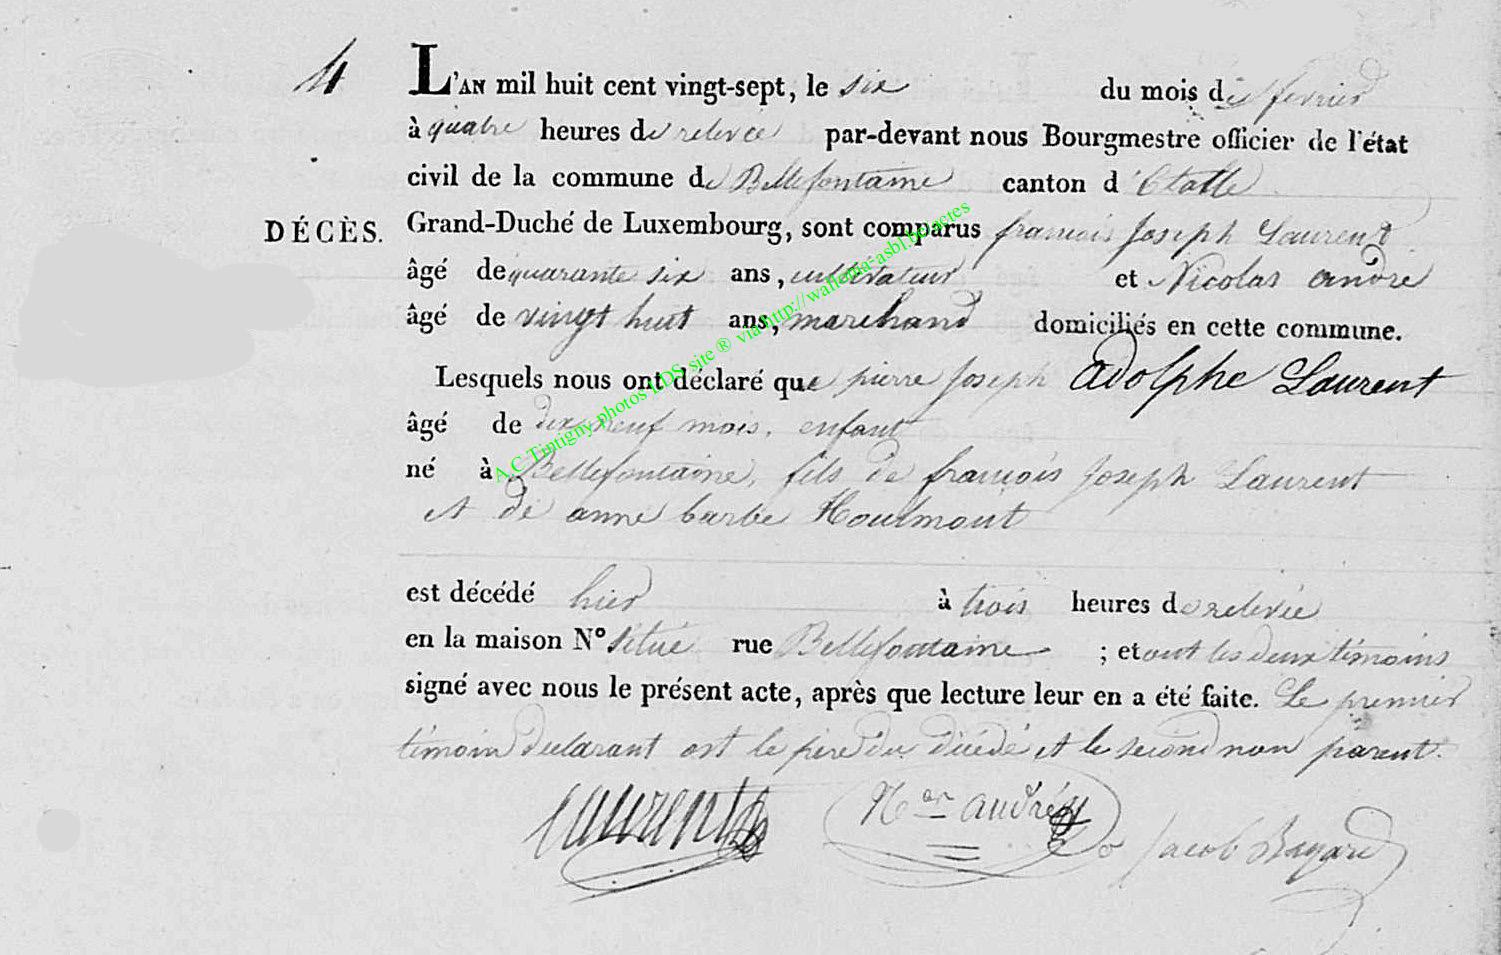 4
L'AN mil huit cent vingt-sept, le six du mois de fevrier
à quatre heures de relevée par-devant nous Bourgmestre officier de l'état
civil de la commune de Bellefontaine canton d'Etalle
DÉCÈS. Grand-Duché de Luxembourg, sont comparus francois Joseph Laurent
âgé de quarante six ans, cultivateur et Nicolas andre
âgé de vingt huit ans, marchand domiciliés en cette commune.
Lesquels nous ont déclaré que pierre Joseph adolphe Laurent
âgé de dix neuf mois, enfant
né à Bellefontaine, fils de francois Joseph Laurent
et de anne barbe Houlmont
est décédé hier à trois heures de relevée
en la maison N° situé rue Bellefontaine ; et ont les deux témoins
signé avec nous le présent acte, après que lecture leur en a été faite. Le premier
témoin declarant est le père du décédé et le second non parent.
Laurent Nas andré Jacob Bayard
A.C Tintigny photos LDS site ® via http://wallonia-asbl.be/actes